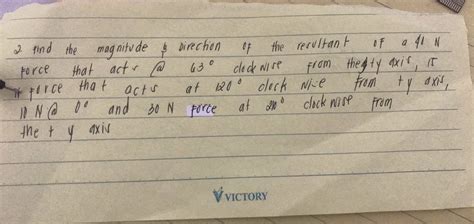 2. Find the magnitude & Direction of the resultant of a 40 N
force that acts @ 63° clock wise from the +y axis, 15
N force that acts at 120° clock wise from + y axis,
10 N @ 0° and 30 N force at 210° clockwise from
the + y axis
VICTORY